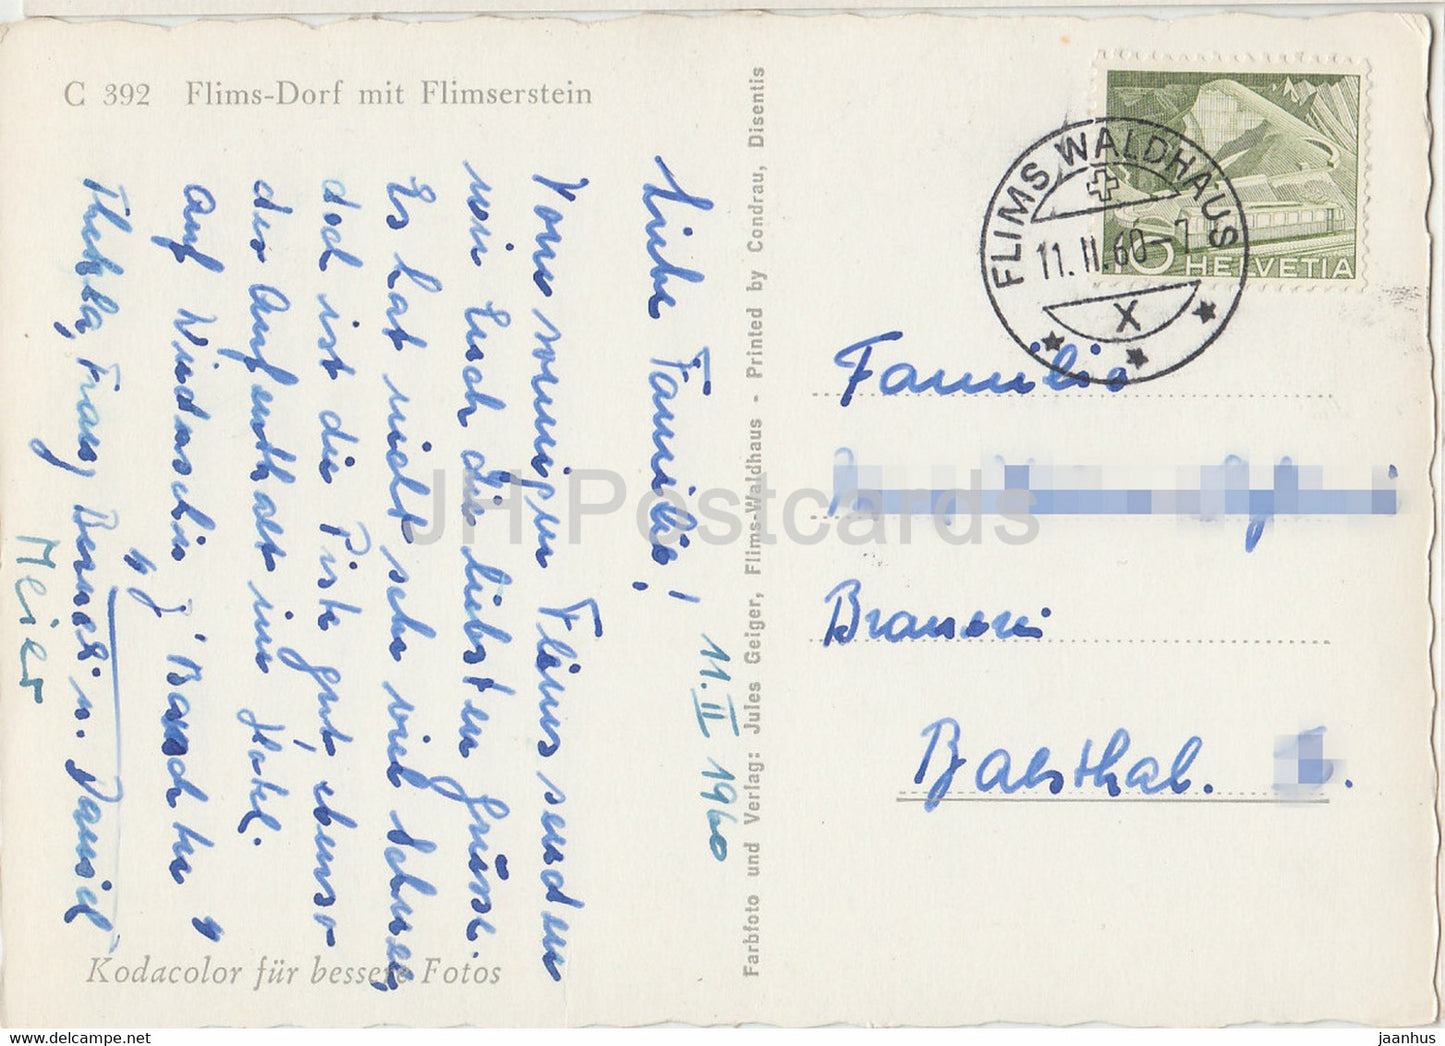 C 392 Flims-Dorf mit Flimserstein
Liebe Familie!
11. II 1960
Vom sonnigen Flims senden
wir Euch die liebsten Grüsse.
Es hat nicht sehr viel Schnee,
doch ist die Piste gut, ebenso
der Aufenthalt im Hotel.
Auf Wiederseh'n
Thekla, Franz Berneli u. Daniel
Meier
Kodacolor für bessere Fotos
Farbfoto und Verlag: Jules Geiger, Flims-Waldhaus - Printed by Condrau, Disentis
FLIMS WALDHAUS
11. II. 60 - 7
X
HELVETIA
Familie
Brauerei
Balsthal.
JH Postcards
www.delcampe.net
jaanhus